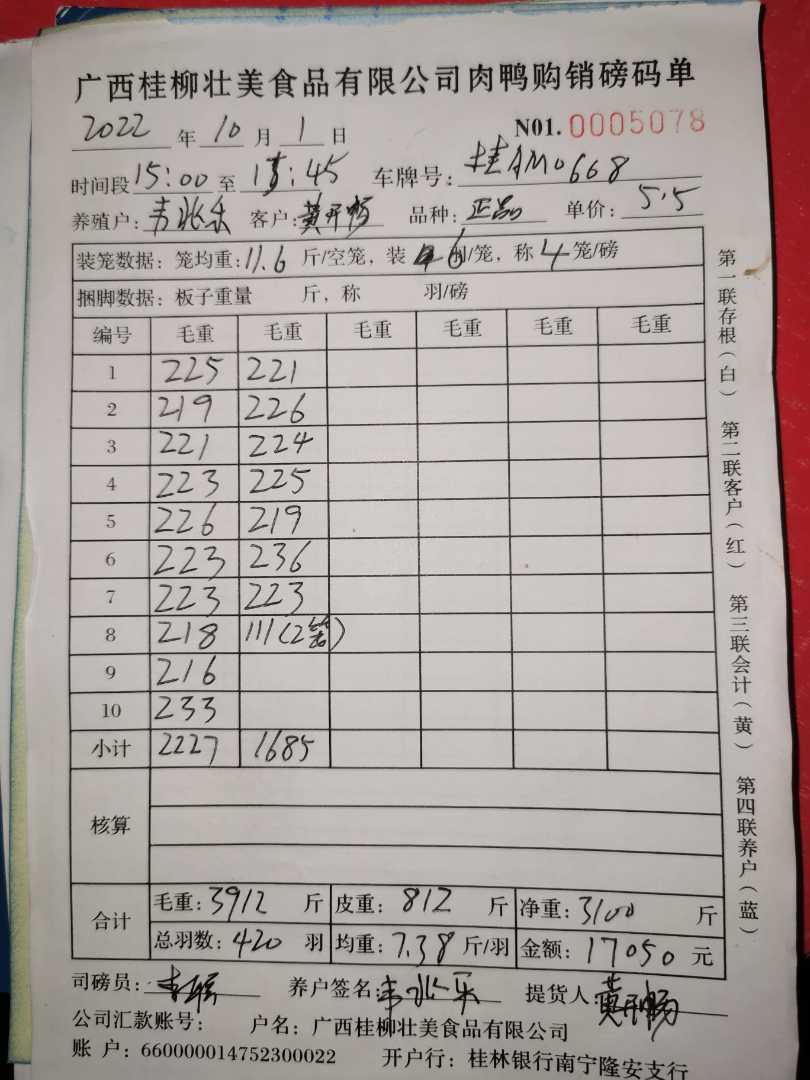 广西桂柳壮美食品有限公司肉鸭购销磅码单
2022 年 10 月 1 日 N01. 0005078
时间段 15:00 至 15:45 车牌号: 桂AM0668
养殖户: 韦兆乐 客户: 黄开畅 品种: 正品 单价: 5.5
装笼数据: 笼均重: 11.6 斤/空笼, 装 6 羽/笼, 称 4 笼/磅
捆脚数据: 板子重量 斤, 称 羽/磅
编号 毛重 毛重 毛重 毛重 毛重 毛重
1 225 221
2 219 226
3 221 224
4 223 225
5 226 219
6 223 236
7 223 223
8 218 111(2笼)
9 216
10 233
小计 2227 1685
核算
合计 毛重: 3912 斤 皮重: 812 斤 净重: 3100 斤
总羽数: 420 羽 均重: 7.38 斤/羽 金额: 17050 元
司磅员: 养户签名: 韦兆乐 提货人: 黄开畅
公司汇款账号: 户名: 广西桂柳壮美食品有限公司
账 户: 660000014752300022 开户行: 桂林银行南宁隆安支行
第一联存根(白) 第二联客户(红) 第三联会计(黄) 第四联养户(蓝)